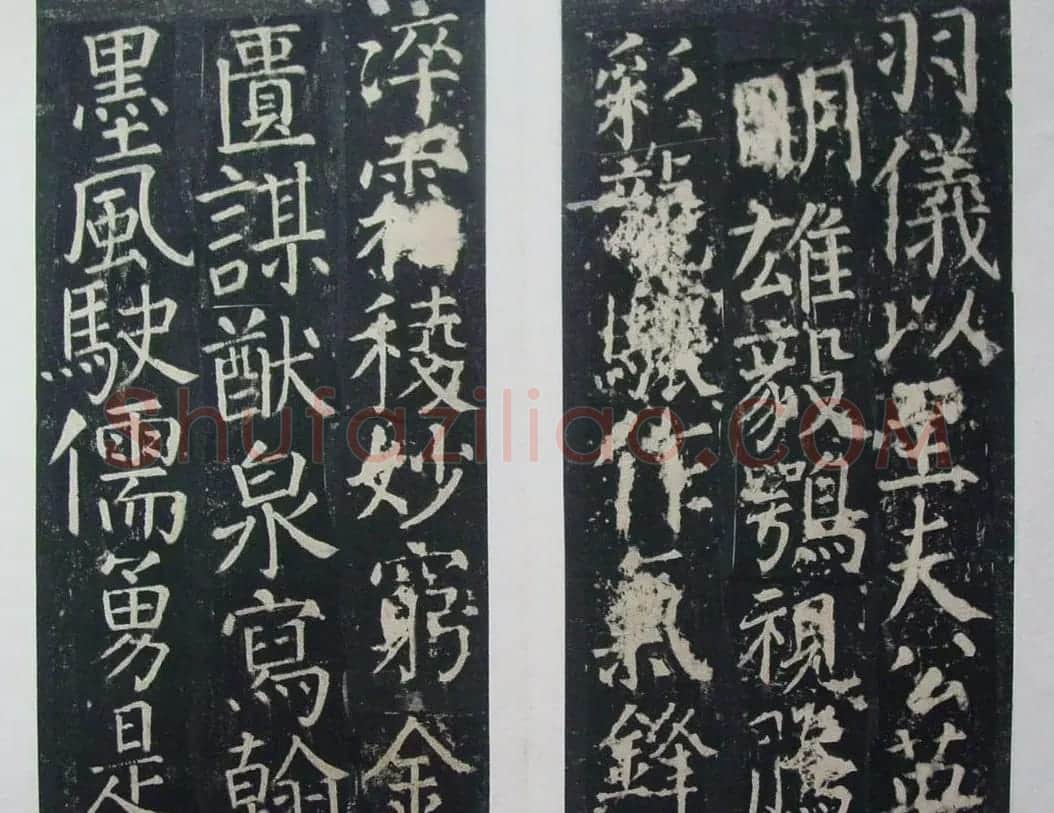 羽儀以夫公英
明雄毅鶚視騰
彩龍驤作氣鋒
淬霜稜妙窮金
匱謀猷泉寫翰
墨風駛儒勇是
Shufaziliao.COM